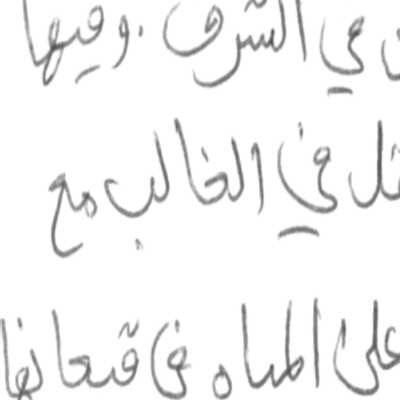 في الشرق . وفيها
في الغالب مع
على المياه في قيعانها